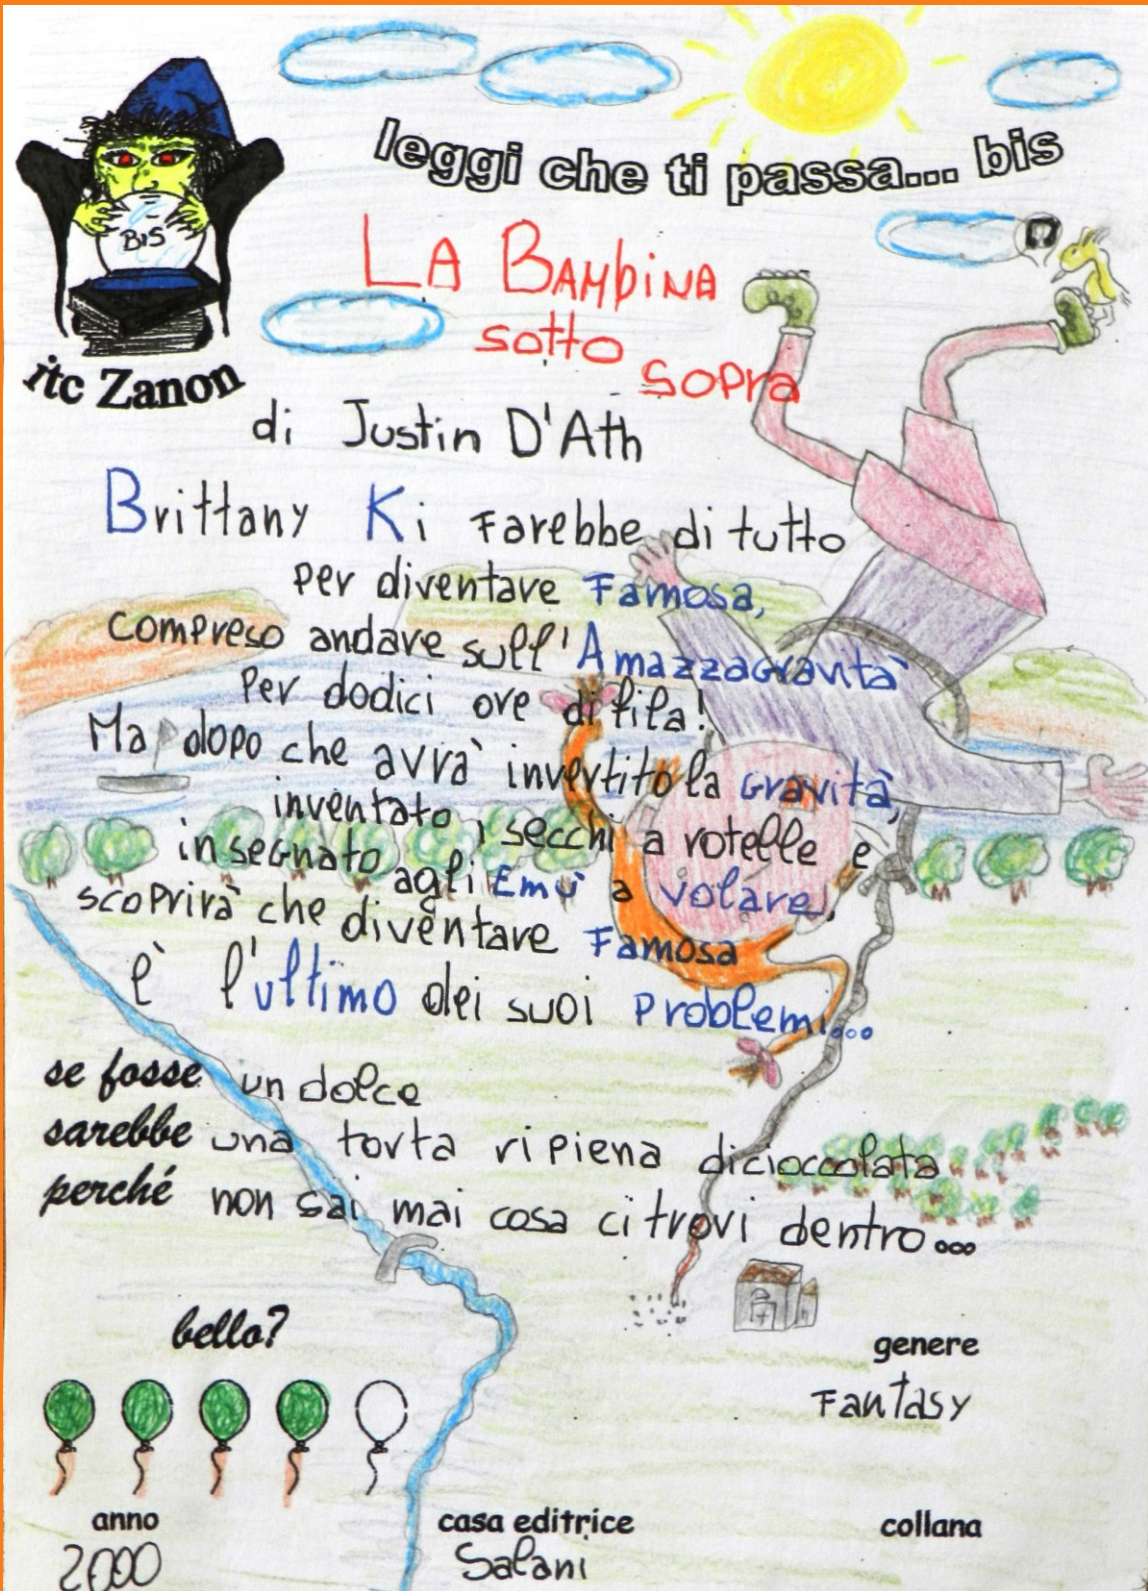 leggi che ti passa... bis
BIS
itc Zanon
LA BAMbiNA
sotto
sopra
di Justin D'Ath
Brittany Ki farebbe di tutto
per diventare Famosa,
compreso andare sull'Amazzagravità
per dodici ore di fila!
Ma dopo che avrà invertito la gravità,
inventato i secchi a rotelle e
insegnato agli Emù a volare,
scoprirà che diventare Famosa
è l'ultimo dei suoi problemi...
se fosse un dolce
sarebbe una torta ripiena di cioccolata
perché non sai mai cosa ci trovi dentro...
bello?
genere
Fantasy
anno
2000
casa editrice
Salani
collana